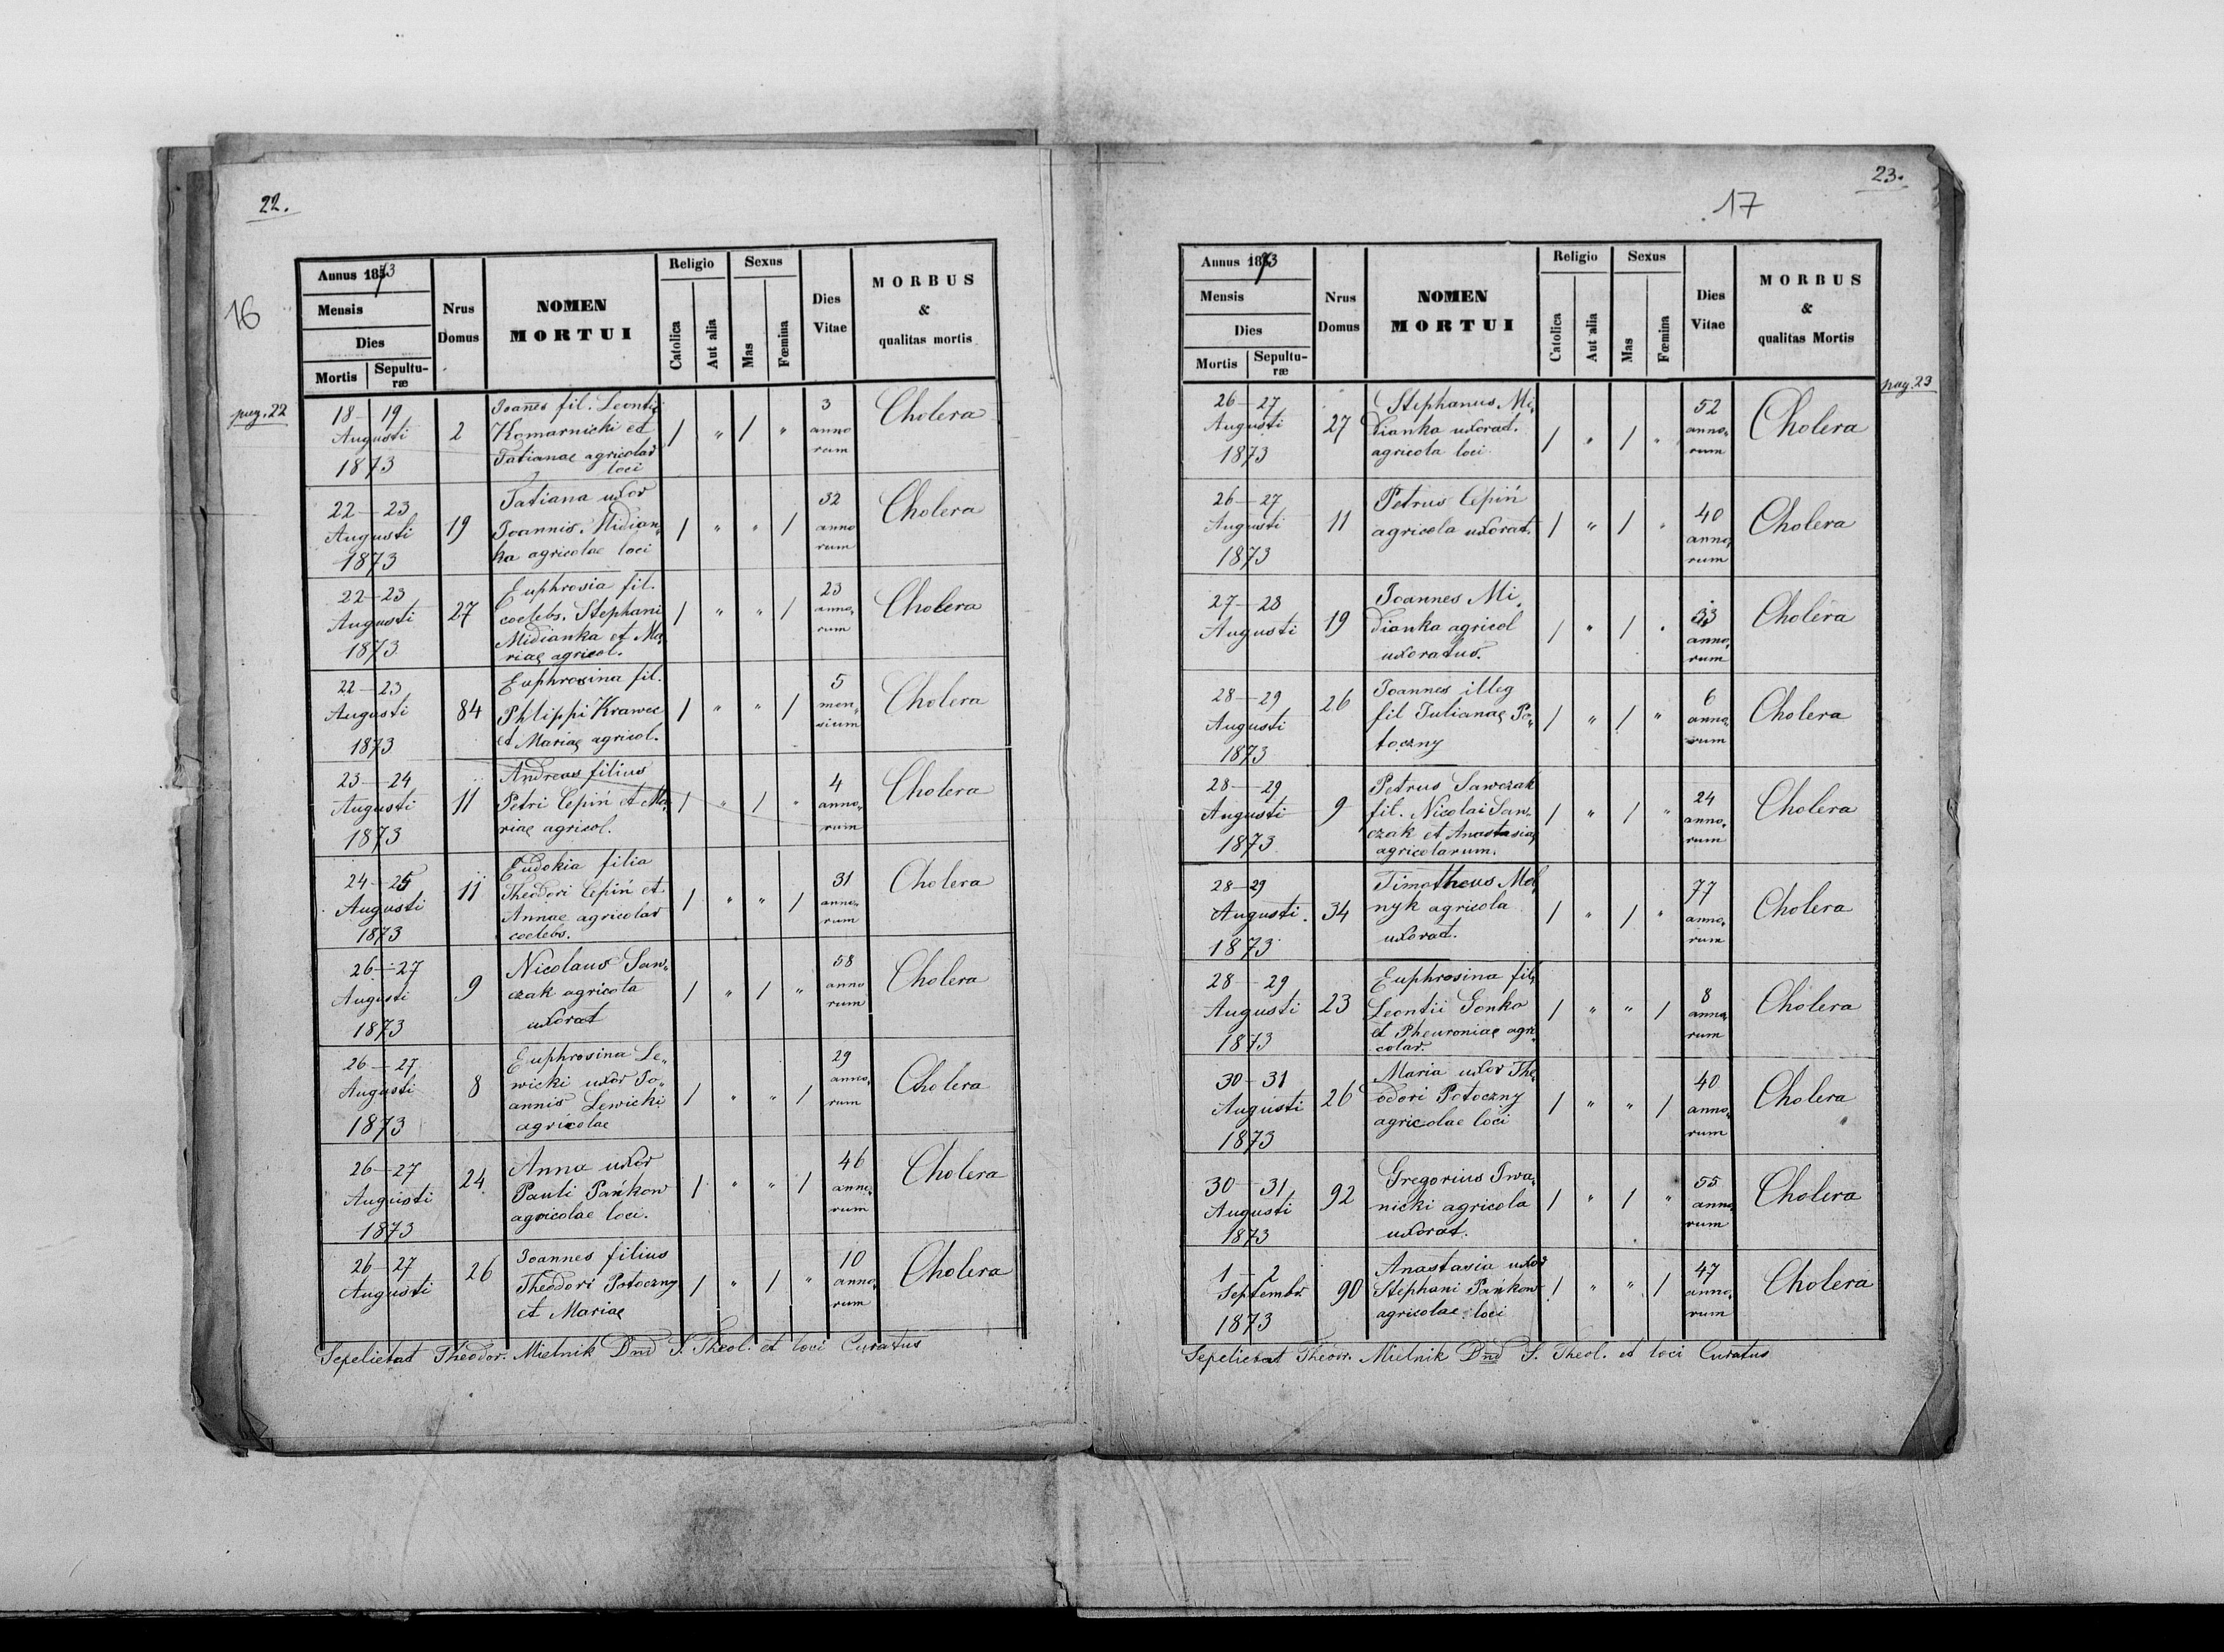 22.
16
pag. 22
Annus 1873
Mensis
Dies
Mortis
Sepultu-
ræ
Nrus
Domus
NOMEN
MORTUI
Religio
Catolica
Aut alia
Sexus
Mas
Fœmina
Dies
Vitae
MORBUS
&
qualitas mortis
18 - 19
Augusti
1873
2
Joannes fil. Leontii
Komarnicki et
Tatianae agricolar
loci
/ " / "
3
anno
rum
Cholera
22 - 23
Augusti
1873
19
Tatiana uxor
Joannis Midian„
ka agricolae loci
/ " " /
32
anno
rum
Cholera
22 - 23
Augusti
1873
27
Euphrosia fil.
coelebs. Stephani
Midianka et Ma„
riae agricol.
/ " " /
23
anno„
rum
Cholera
22 - 23
Augusti
1873
84
Euphrosina fil.
Phlippi Krawec
et Mariae agricol.
/ " " /
5
men„
sium
Cholera
23 - 24
Augusti
1873
11
Andreas filius
Petri Cepiń et Ma„
riae agricol.
/ " / "
4
anno„
rum
Cholera
24 - 25
Augusti
1873
11
Eudokia filia
Theodori Cepiń et
Annae agricolar
coelebs.
/ " " /
31
anno„
rum
Cholera
26 - 27
Augusti
1873
9
Nicolaus Saw„
czak agricola
uxorat
/ " / "
58
anno
rum
Cholera
26 - 27
Augusti
1873
8
Euphrosina Le„
wicki uxor Jo„
annis Lewicki
agricolae
/ " " /
29
anno„
rum
Cholera
26 - 27
Augusti
1873
24
Anna uxor
Pauli Pańkow
agricolae loci.
/ " " /
46
anno„
rum
Cholera
26 - 27
Augusti
26
Joannes filius
Theodori Potoczny
et Mariae
/ " / "
10
anno„
rum
Cholera
Sepeliebat Theodor. Mielnik Dnd S. Theol. et loci Curatus
23.
17
pag. 23
Annus 1873
Mensis
Dies
Mortis
Sepultu-
ræ
Nrus
Domus
NOMEN
MORTUI
Religio
Catolica
Aut alia
Sexus
Mas
Fœmina
Dies
Vitae
MORBUS
&
qualitas Mortis
26 - 27
Augusti
1873
27
Stephanus Mi„
dianka uxorat.
agricola loci
/ " / "
52
anno„
rum
Cholera
26 - 27
Augusti
1873
11
Petrus Cepiń
agricola uxorat.
/ " / "
40
anno„
rum
Cholera
27 - 28
Augusti
19
Joannes Mi„
dianka agricol
uxoratus.
/ " / "
33
anno„
rum
Cholera
28 - 29
Augusti
1873
26
Joannes illeg
fil Julianae Po„
toczny
/ " / "
6
anno„
rum
Cholera
28 - 29
Augusti
1873
9
Petrus Sawczak
fil. Nicolai Saw„
czak et Anastasiae
agricolarum.
/ " / "
24
anno„
rum
Cholera
28 - 29
Augusti.
1873
34
Timotheus Mel„
nyk agricola
uxorat.
/ " / "
77
anno„
rum
Cholera
28 - 29
Augusti
1873
23
Euphrosina fil.
Leontii Gonko
et Pheuroniae agri„
colar.
/ " " /
8
anno„
rum
Cholera
30 - 31
Augusti
1873
26
Maria uxor The„
odori Potoczny
agricolae loci
/ " " /
40
anno„
rum
Cholera
30 - 31
Augusti
1873
92
Gregorius Iwa„
nicki agricola
uxorat.
/ " / "
55
anno„
rum
Cholera
1 - 2
Septembr
1873
90
Anastasia uxor
Stephani Pańkow
agricolae loci
/ " " /
47
anno„
rum
Cholera
Sepeliebat Theodr. Mielnik Dnd S. Theol. et loci Curatus